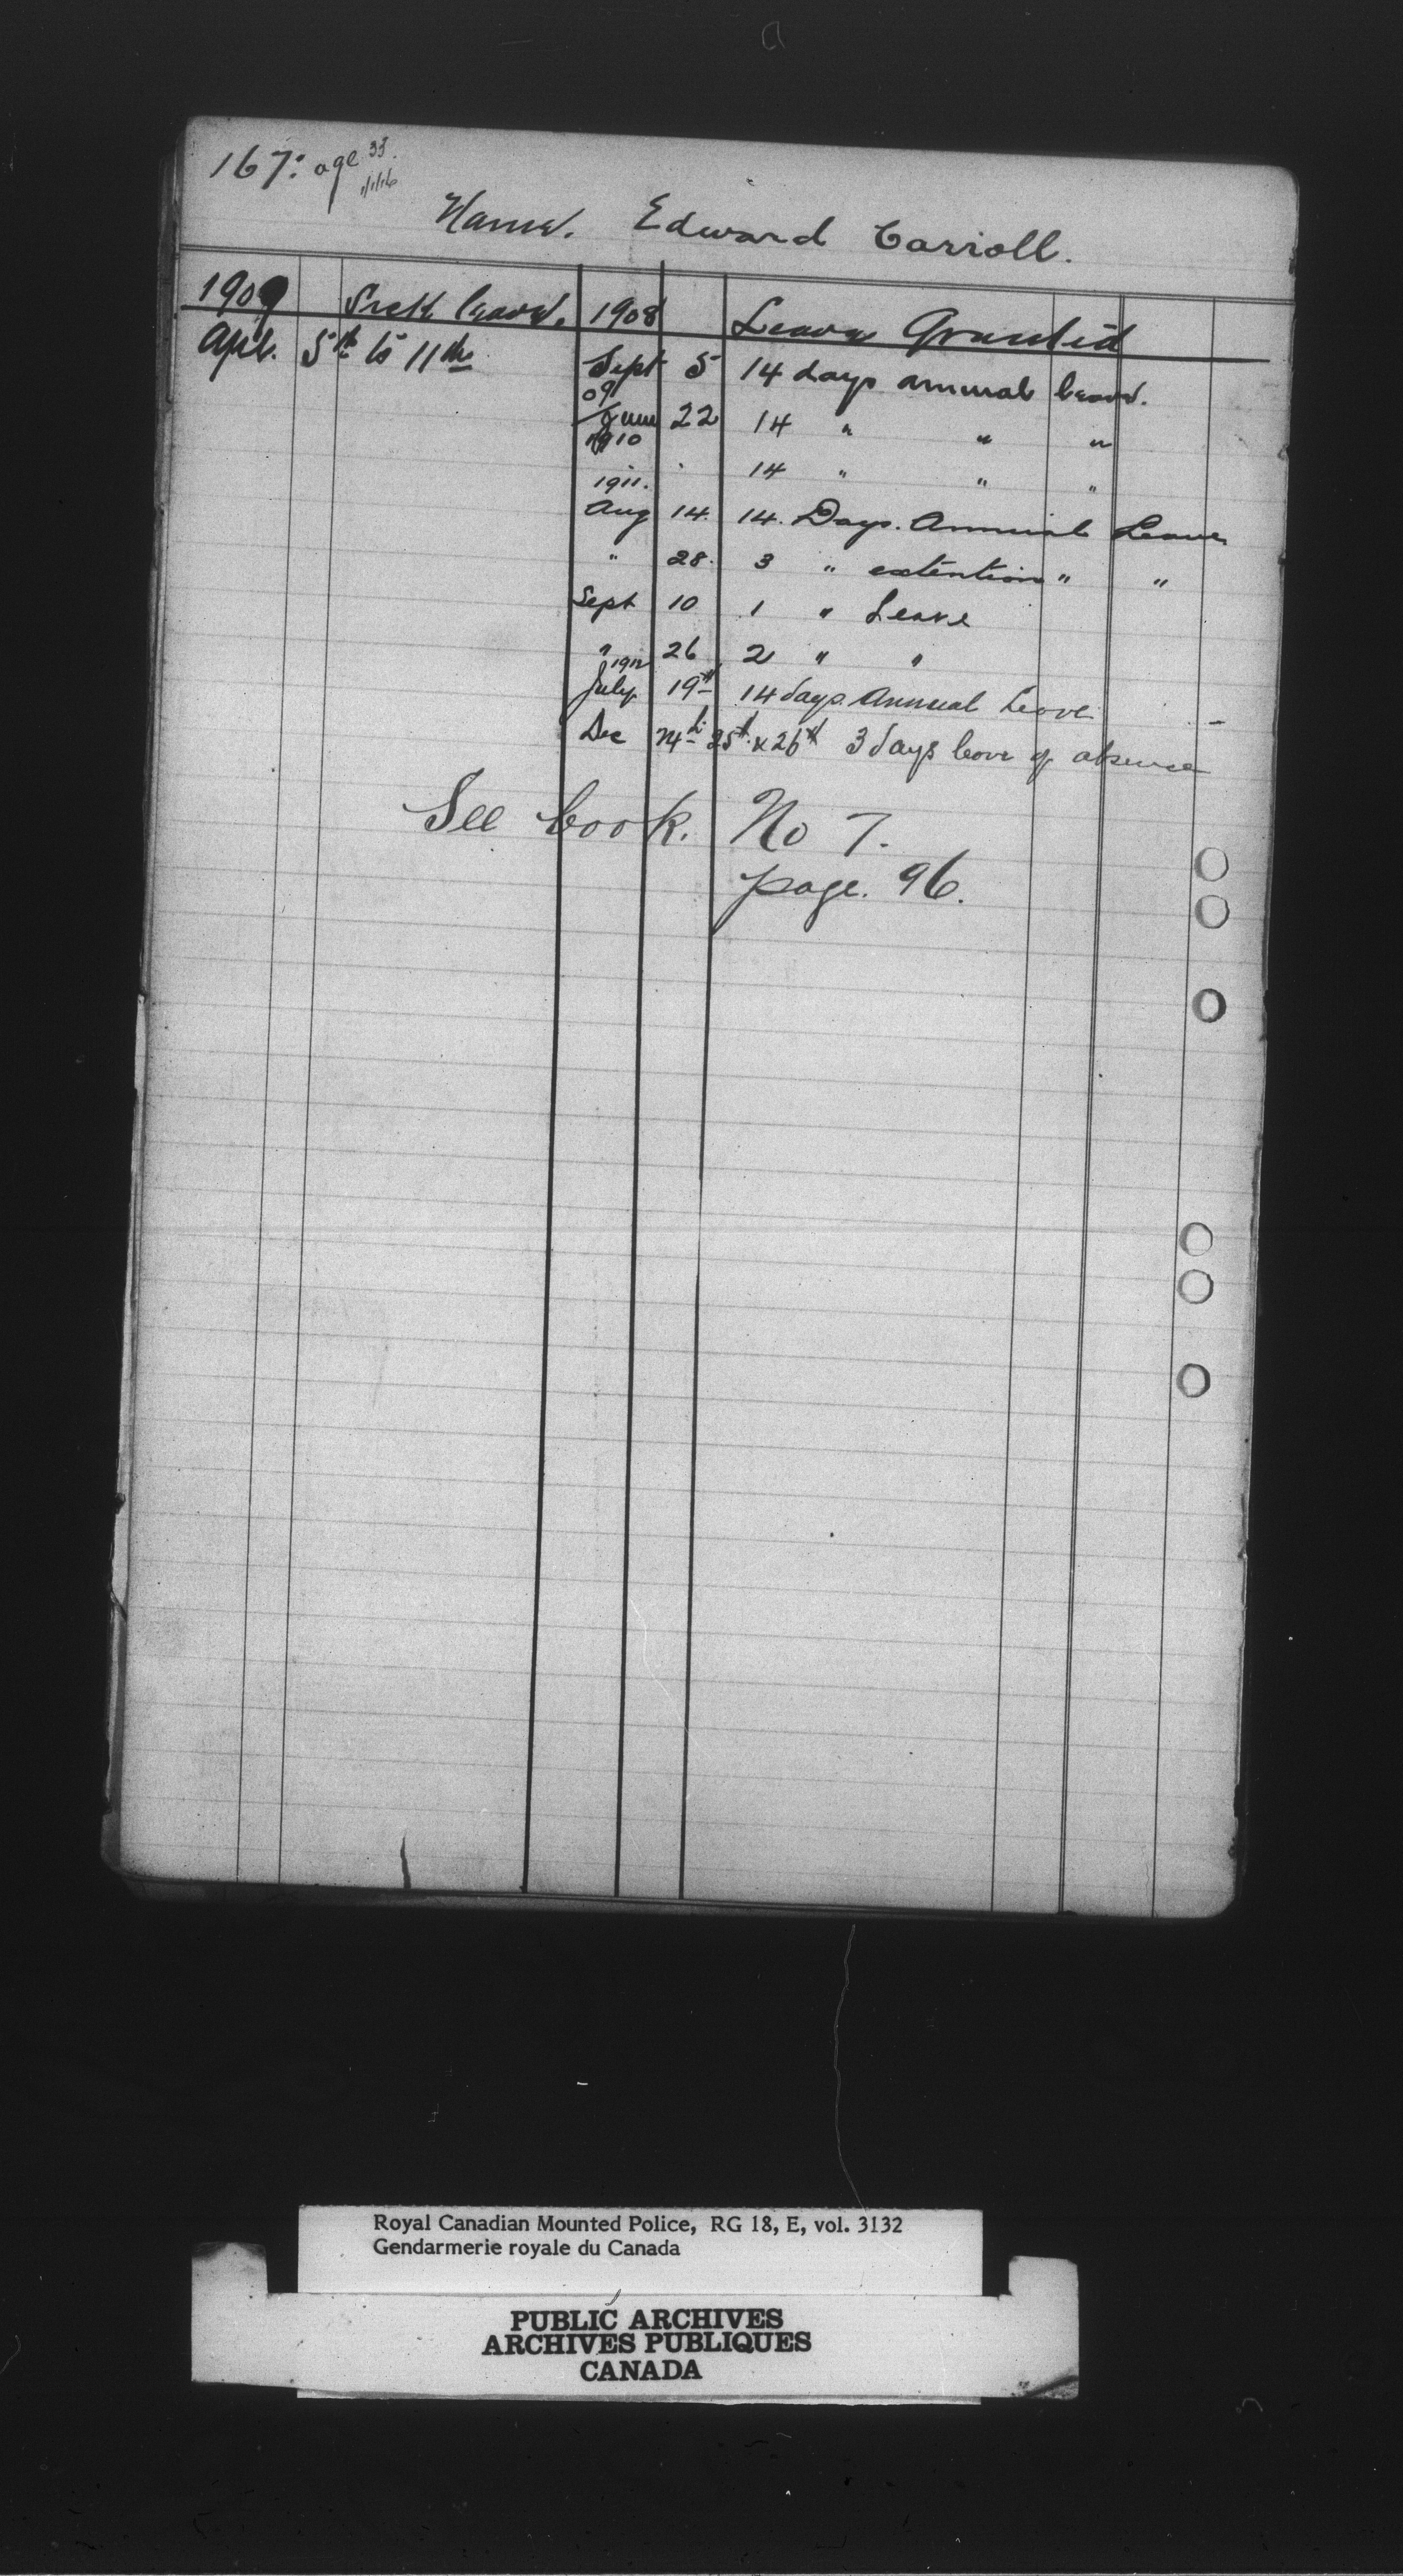 167: age 33.
1/1/16
Name. Edward Carroll.
1909 Sick leave. 1908 Leave Granted
Apl. 5th to 11th Sept 5 14 days annual leave.
09
June 22 14 " " "
1910
14 " " "
1911.
Aug 14. 14. Days. Annual Leave
" 28. 3 " extention " "
Sept 10 1 " Leave
" 26 2 " "
1912
July 19th 14 days Annual Leave
Dec 24th 25th & 26th 3 days leave of absence
See book. No 7.
page. 96.
Royal Canadian Mounted Police, RG 18, E, vol. 3132
Gendarmerie royale du Canada
PUBLIC ARCHIVES
ARCHIVES PUBLIQUES
CANADA